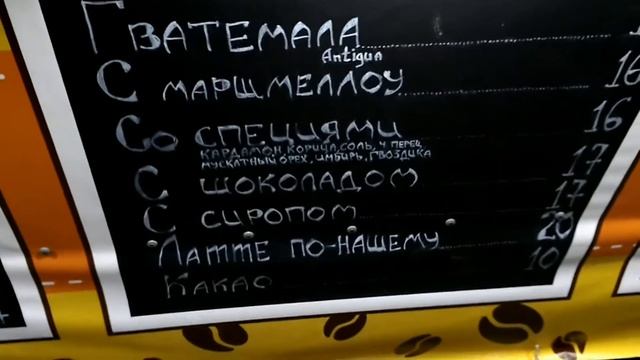 Гватемала
Antigua
С маршмеллоу 16
Со специями 16
кардамон, корица, соль, ч перец,
мускатный орех, имбирь, гвоздика
С шоколадом 17
С сиропом 17
Латте по-нашему 20
Какао 10